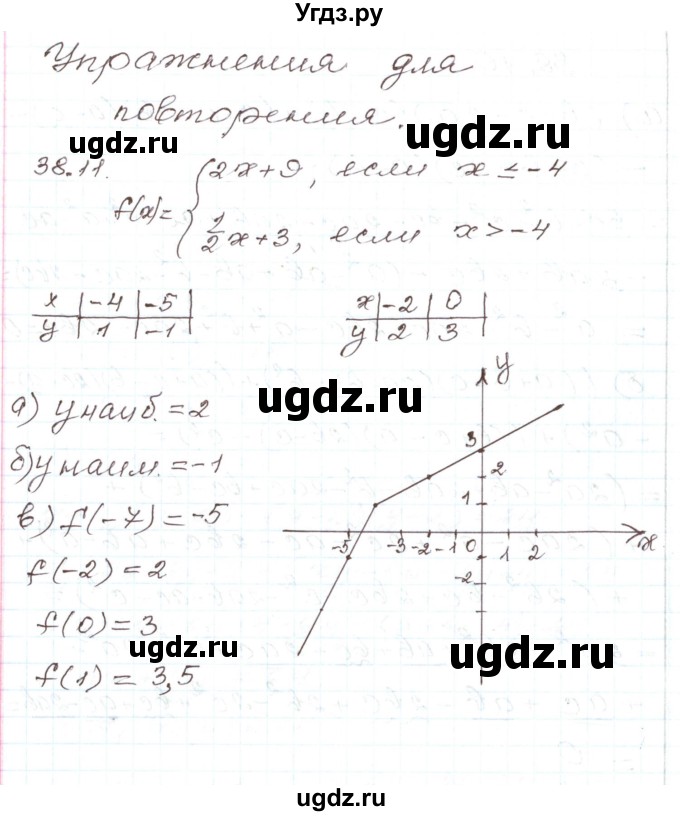 Угдз.ру
Упражнения для
повторения.
ugdz.ru
ugdz.ru
38.11.
f(x)= { 2x+9, если x ≤ -4
1/2 x+3, если x > -4
x | -4 | -5 |
y | 1 | -1 |
x | -2 | 0 |
y | 2 | 3 |
ugdz.ru
а) y наиб. = 2
б) y наим. = -1
в) f(-7) = -5
f(-2) = 2
f(0) = 3
f(1) = 3,5
y
3
2
1
-5 -3 -2 -1 0 1 2 x
-2
ugdz.ru
ugdz.ru
ugdz.ru